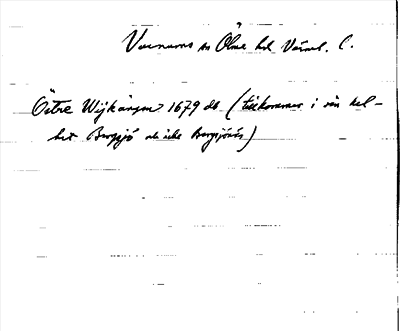 Varnums sn Ölme hd Värml. l.
Östre Wijkängen 1679 db (tillkommer i sin hel-
het Bergsjö och icke Bergsjöås)